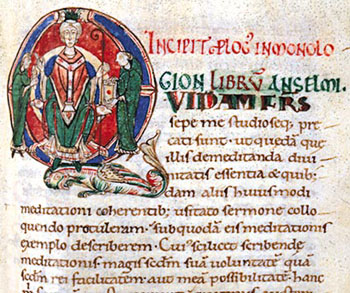 INCIPIT PLOG' IN MONOLO
GION LIBRŪ ANSELMI.
QUIDAM FRS
sepe me studioseq; pre
cati sunt. ut quedā que
illis de meditanda divi
nitatis essentia & quibus
dam aliis huius modi
meditationi coherentib; usitato sermone collo
quendo protuleram. sub quodā eis meditationis
exemplo describerem. Cui' scilicet scribende
meditationis magis scdm suā voluntatē quā
scdm rei facilitatem aut meā possibilitatē hanc